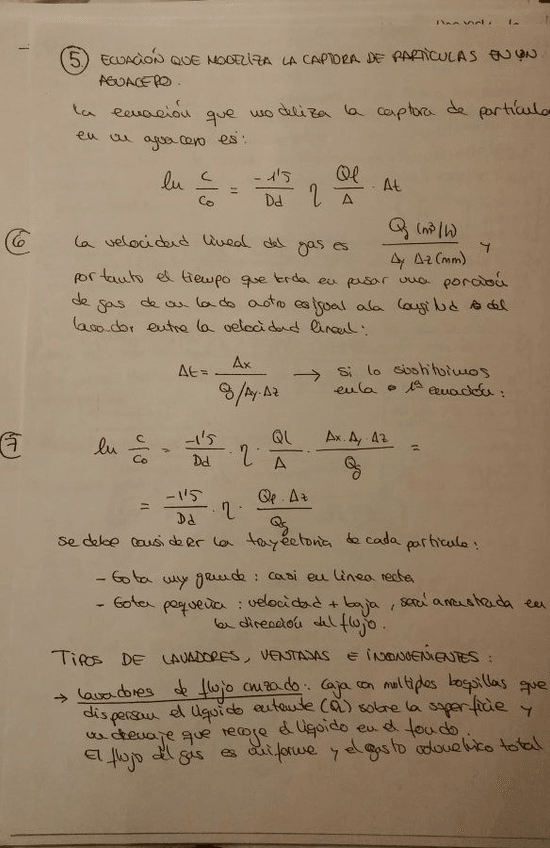 ⑤ ECUACIÓN QUE MODELIZA LA CAPTORA DE PARTÍCULAS EN UN
AGUACERO.
La ecuación que modeliza la captora de partícula
en un aguacero es:
ln C/Co = -1'5/Dd η Ql/A · Δt
⑥ La velocidad lineal del gas es Qg (m³/h) / Δy Δz (mm) y
por tanto el tiempo que tarda en pasar una porción
de gas de un lado a otro es igual a la longitud del
lavador entre la velocidad lineal:
Δt = Δx / Qg/Δy·Δz → si lo sustituimos
en la 1ª ecuación:
⑦ ln C/Co = -1'5/Dd · η · Ql/A · Δx·Δy·Δz/Qg =
= -1'5/Dd · η · Ql·Δz/Qg
se debe considerar la trayectoria de cada partícula:
- Gota muy grande: casi en línea recta
- Gota pequeña: velocidad + baja, será arrastrada en
la dirección del flujo.
TIPOS DE LAVADORES, VENTAJAS E INCONVENIENTES:
→ Lavadores de flujo cruzado: caja con multiples boquillas que
dispersan el líquido entrante (Ql) sobre la superficie y
un drenaje que recoje el líquido en el fondo.
El flujo del gas es uniforme y el gasto volumetrico total